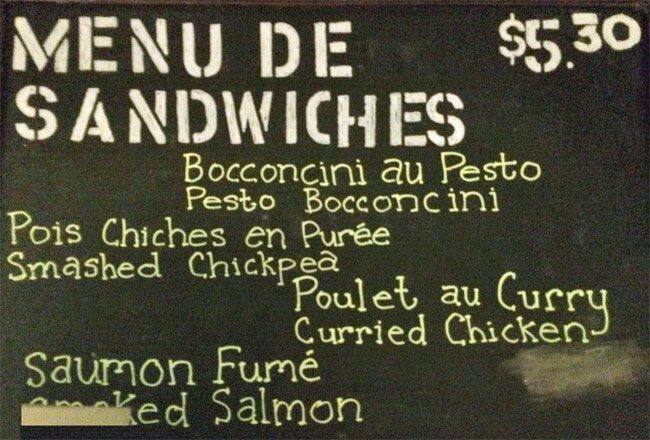 MENU DE $5.30
SANDWICHES
Bocconcini au Pesto
Pesto Bocconcini
Pois Chiches en Purée
Smashed Chickpea
Poulet au Curry
Curried Chicken
Saumon Fumé
Salmon